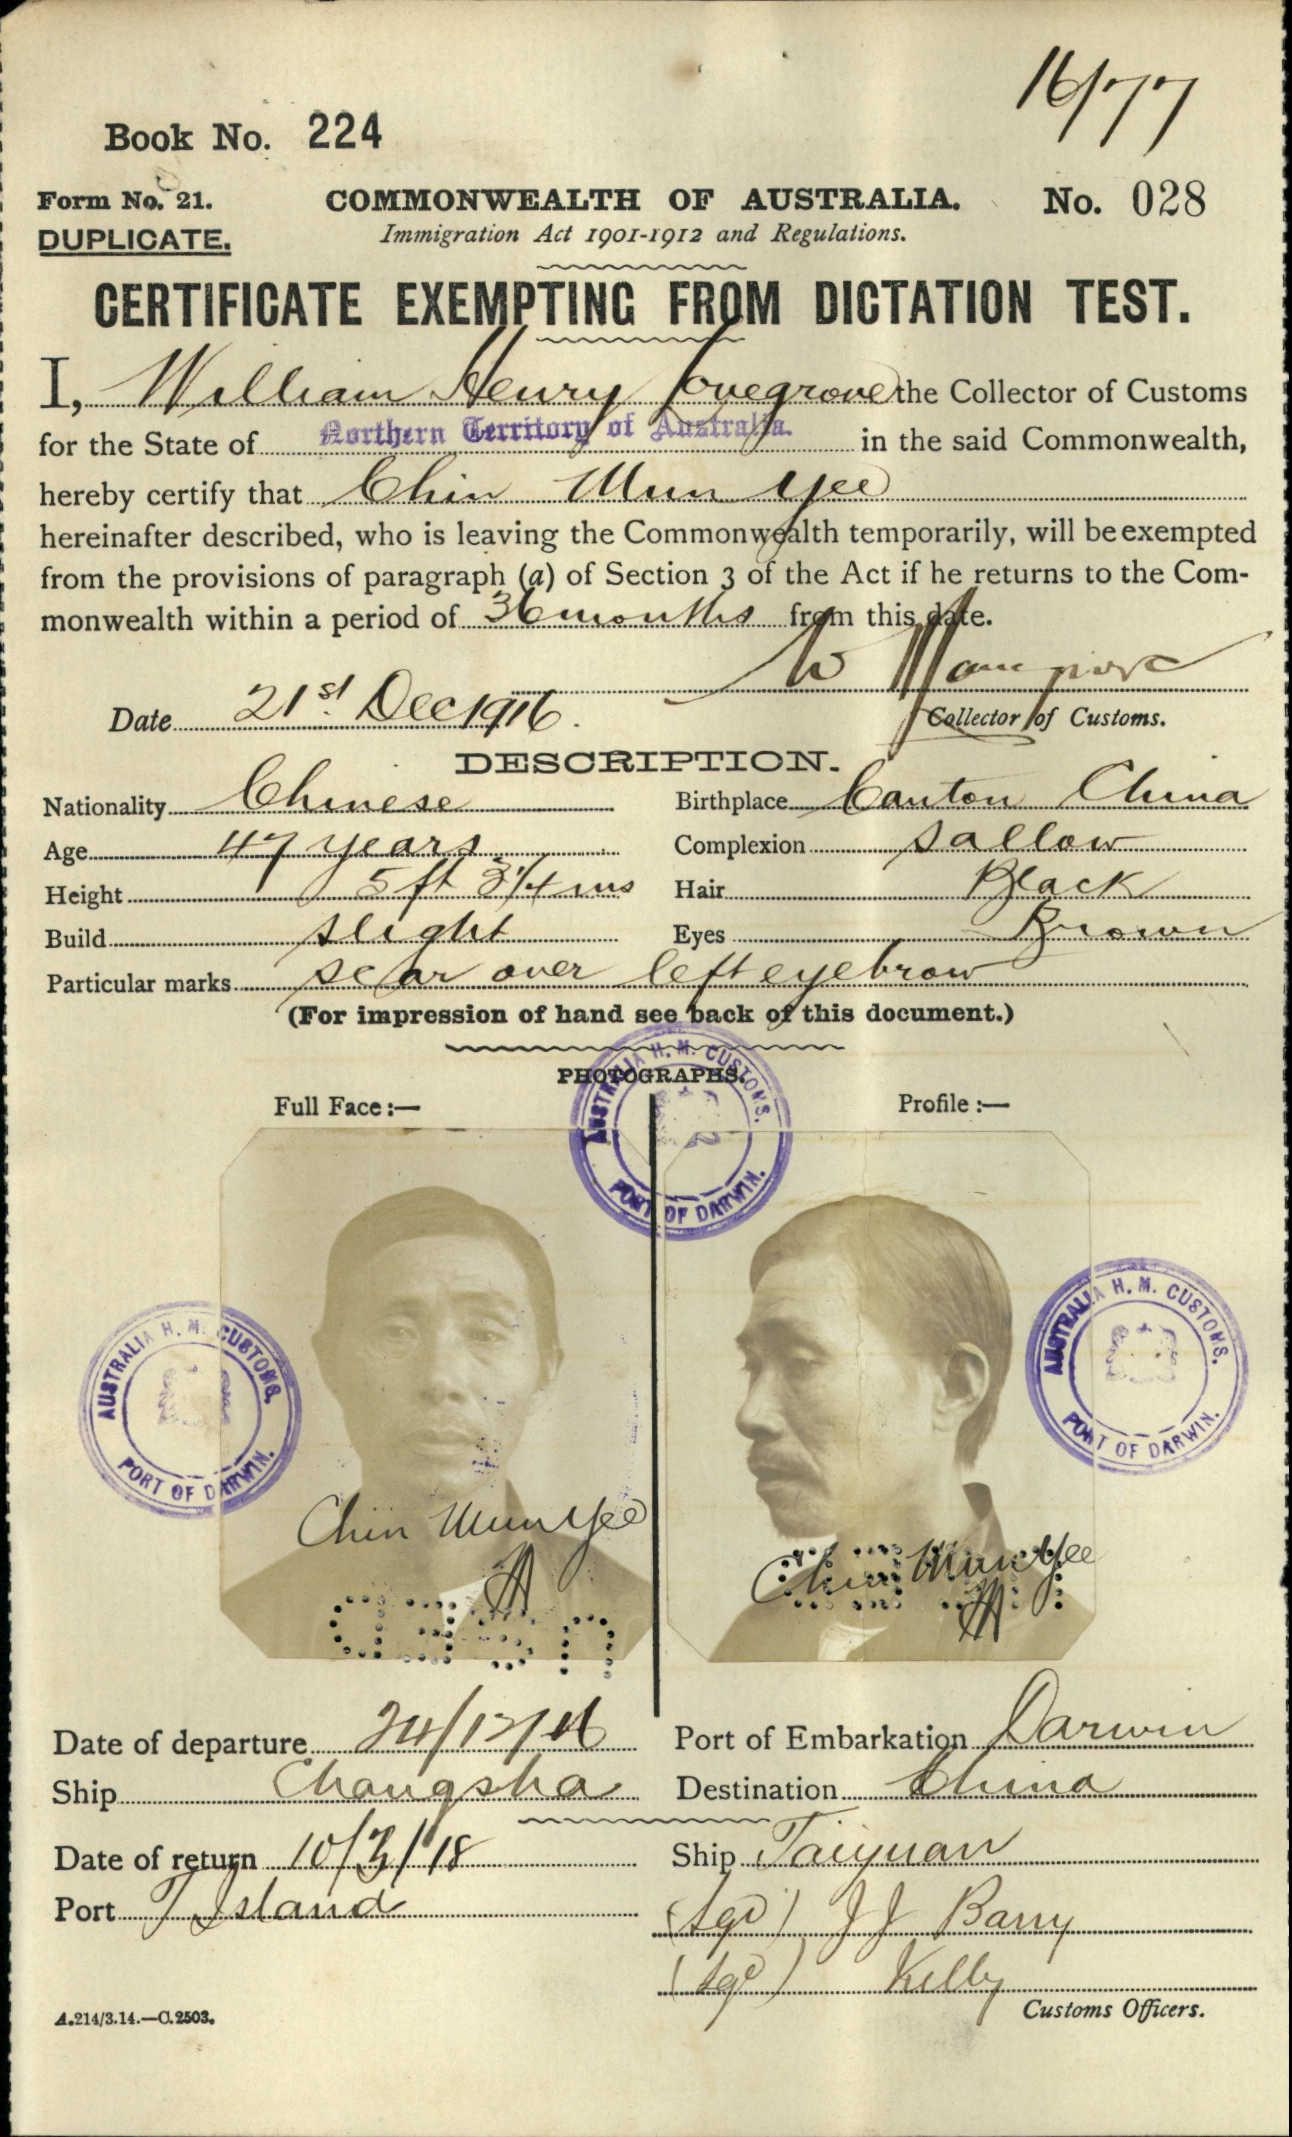 16/77
Book No. 224
Form No. 21. COMMONWEALTH OF AUSTRALIA. No. 028
DUPLICATE. Immigration Act 1901-1912 and Regulations.
CERTIFICATE EXEMPTING FROM DICTATION TEST.
I, William Henry Lovegrove the Collector of Customs
for the State of Northern Territory of Australia. in the said Commonwealth,
hereby certify that Chin Mun Yee
hereinafter described, who is leaving the Commonwealth temporarily, will be exempted
from the provisions of paragraph (a) of Section 3 of the Act if he returns to the Com-
monwealth within a period of 36 months from this date.
Date 21st. Dec 1916.
Collector of Customs.
DESCRIPTION.
Nationality Chinese Birthplace Canton China
Age 47 years Complexion sallow
Height 5 ft 3¼ ins Hair Black
Build slight Eyes Brown
Particular marks scar over left eyebrow
(For impression of hand see back of this document.)
PHOTOGRAPHS.
Full Face:— Profile:—
AUSTRALIA H. M. CUSTOMS. PORT OF DARWIN.
AUSTRALIA H. M. CUSTOMS. PORT OF DARWIN.
AUSTRALIA H. M. CUSTOMS. PORT OF DARWIN.
Chin Mun Yee
Chin Mun Yee
Date of departure 24/12/16 Port of Embarkation Darwin
Ship Changsha Destination China
Date of return 10/3/18 Ship Taiyuan
Port T Island (Sgd) J J Barry
(Sgd) Kelly
A.214/3.14.—C.2503. Customs Officers.